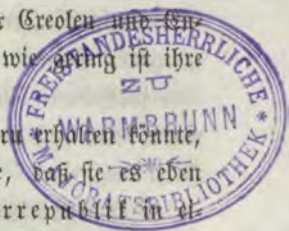 r Creolen und Eu-
wie gering ist ihre
ru erhalten könnte,
e, daß sie es eben
rrepublik in el-
FREISTANDESHERRLICHE
ZU
WARMBRUNN
MAJORATSBIBLIOTHEK